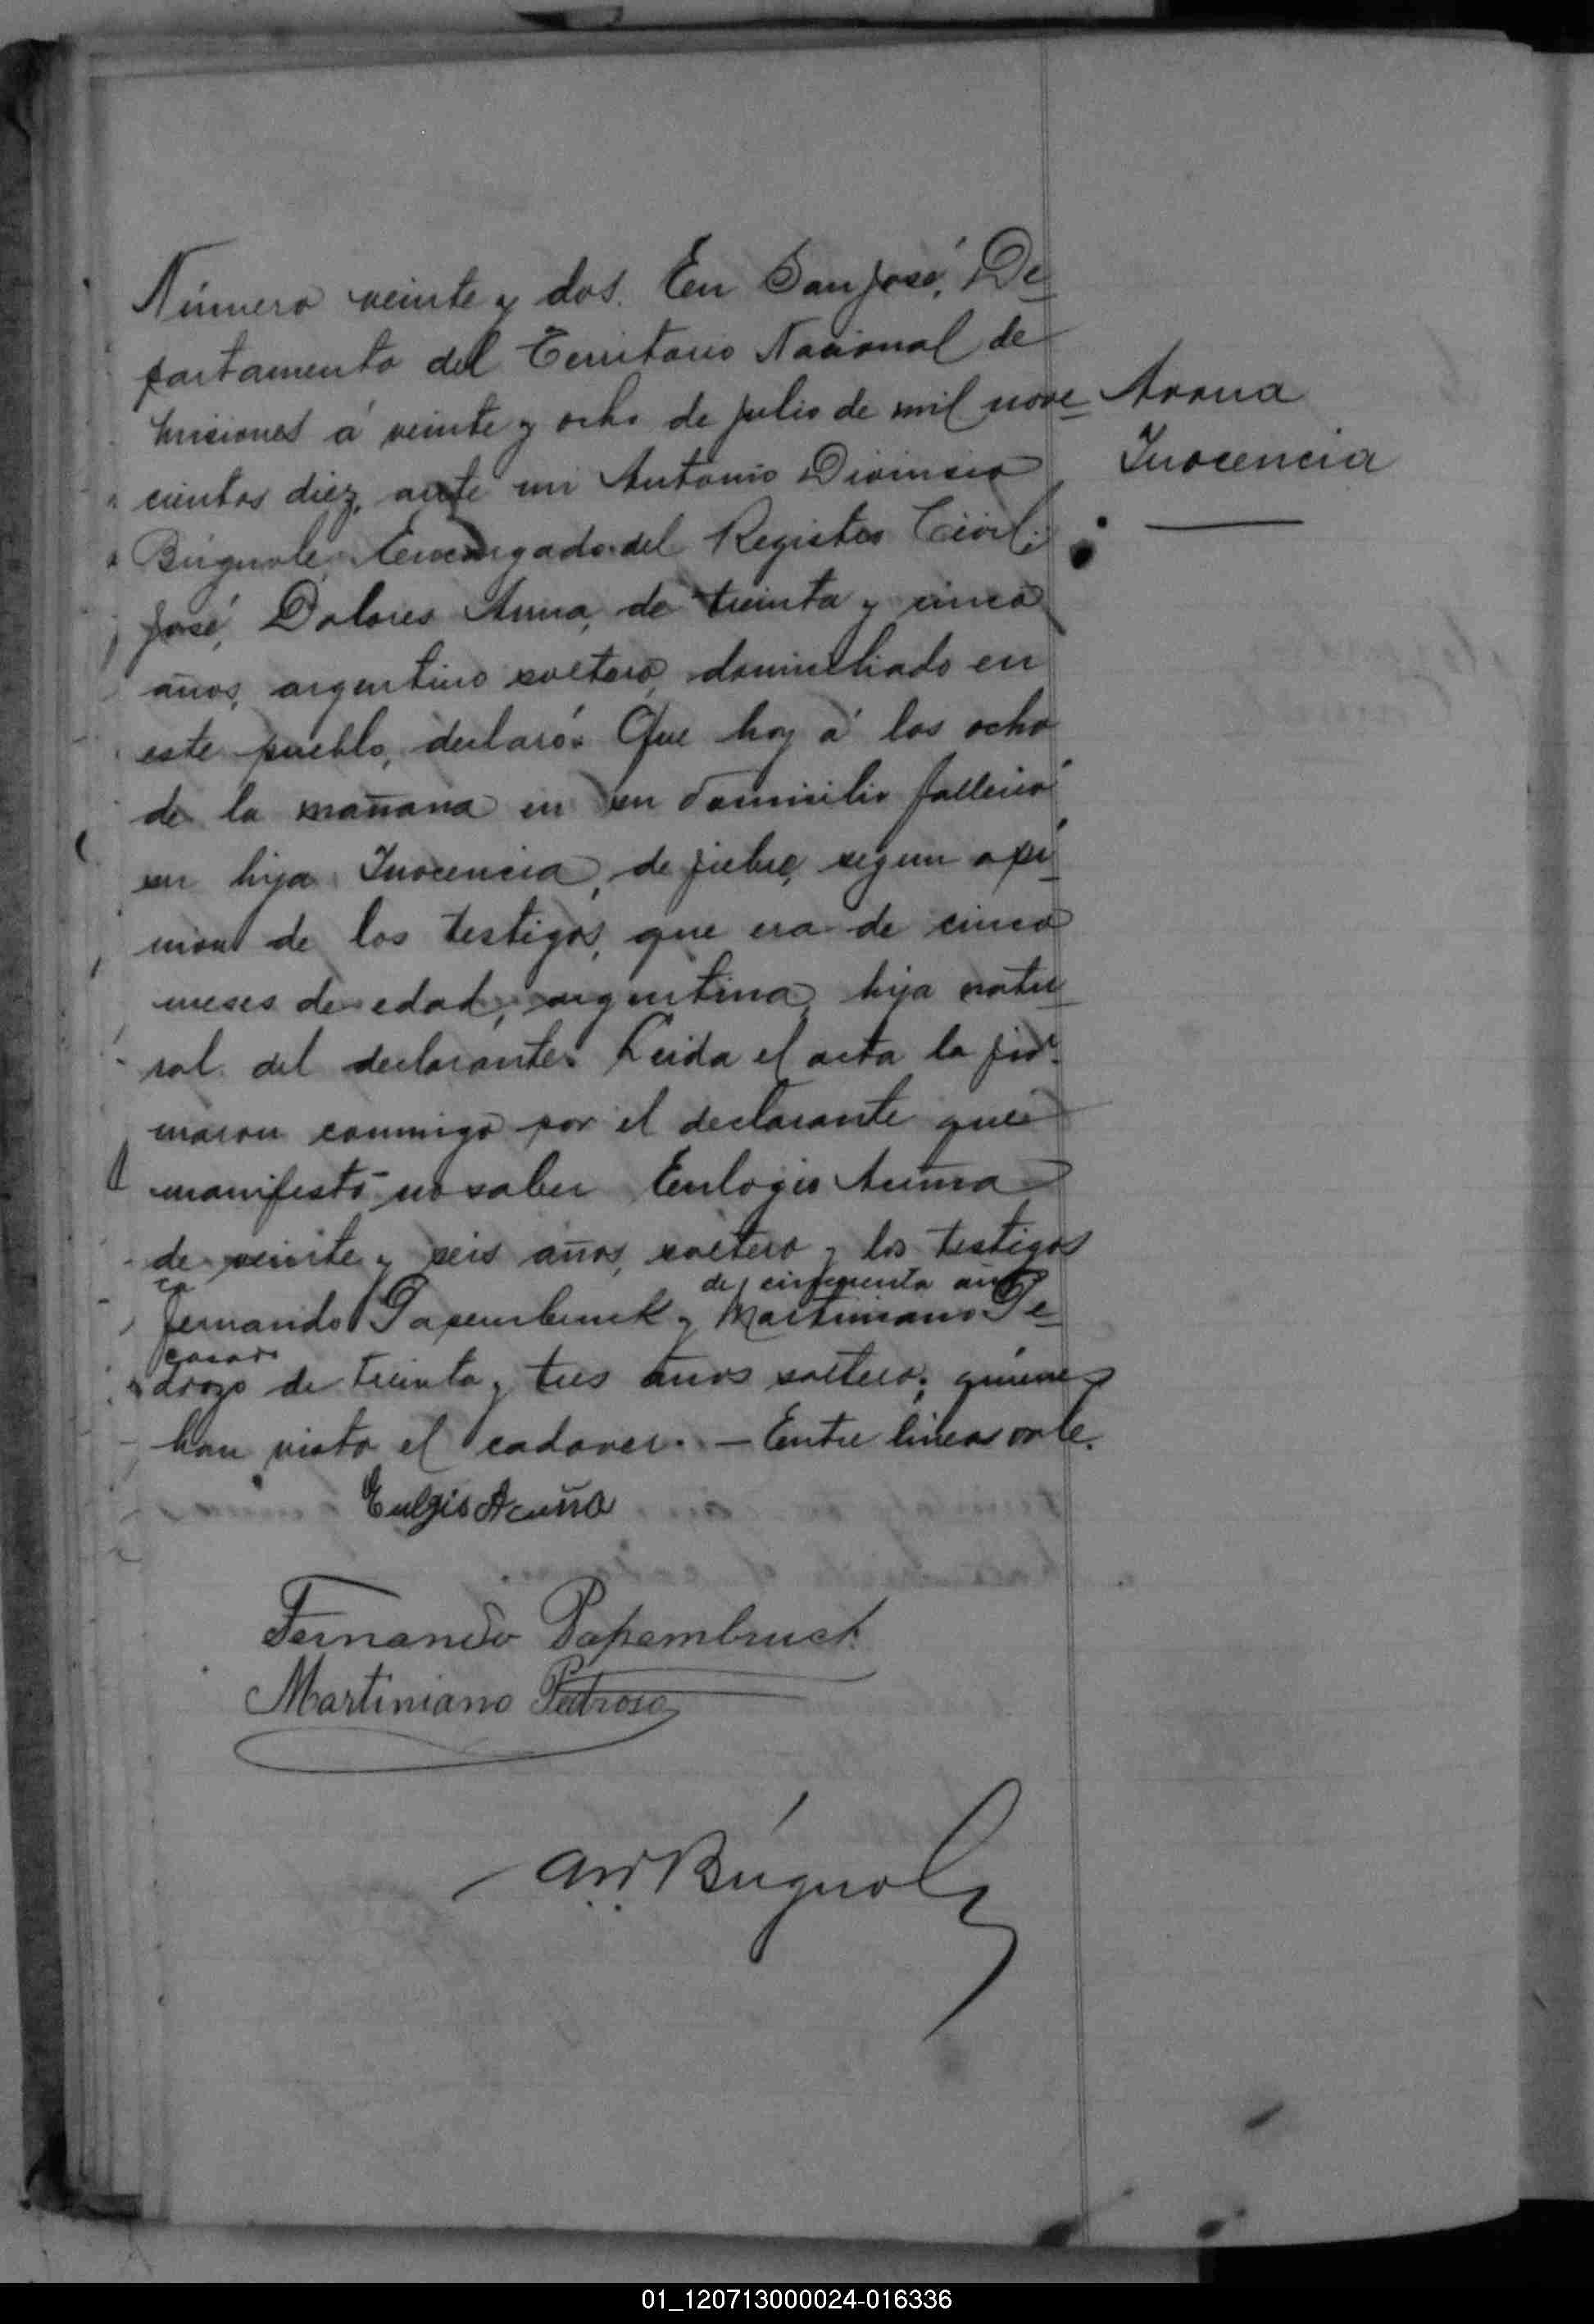 Número veinte y dos. En San José, De-
partamento del Territorio Nacional de
Misiones á veinte y ocho de Julio de mil nove-
cientos diez, ante mi Antonio Dionisio
Búgnole, Encargado del Registro Civil:
José Dolores de treinta y cinco
años, argentino soltero, domiciliado en
este pueblo, declaró: Que hoy á las ocho
de la mañana en su domicilio falleció
su hija Inocencia, de fiebre, segun opi-
nion de los testigos, que era de cinco
meses de edad, argentina, hija natu-
ral del declarante. Leida el acta la fir-
maron conmigo por el declarante que
manifestó no saber Eulogio
de veinte y seis años, soltero y los testigos
de cincuenta años ca
Fernando Papembruck y Martiniano Pe-
casado
drozo de treinta y tres años soltero; quienes
han visto el cadaver. — Entre lineas vale.
Inocencia
Eulogio Acuña
Fernando Papembruck
Martiniano Pedroso
Búgnole
01_120713000024-016336